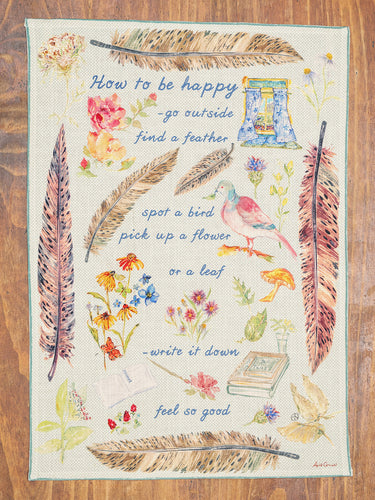 How to be happy
-go outside
find a feather
spot a bird
pick up a flower
or a leaf
-write it down
feel so good